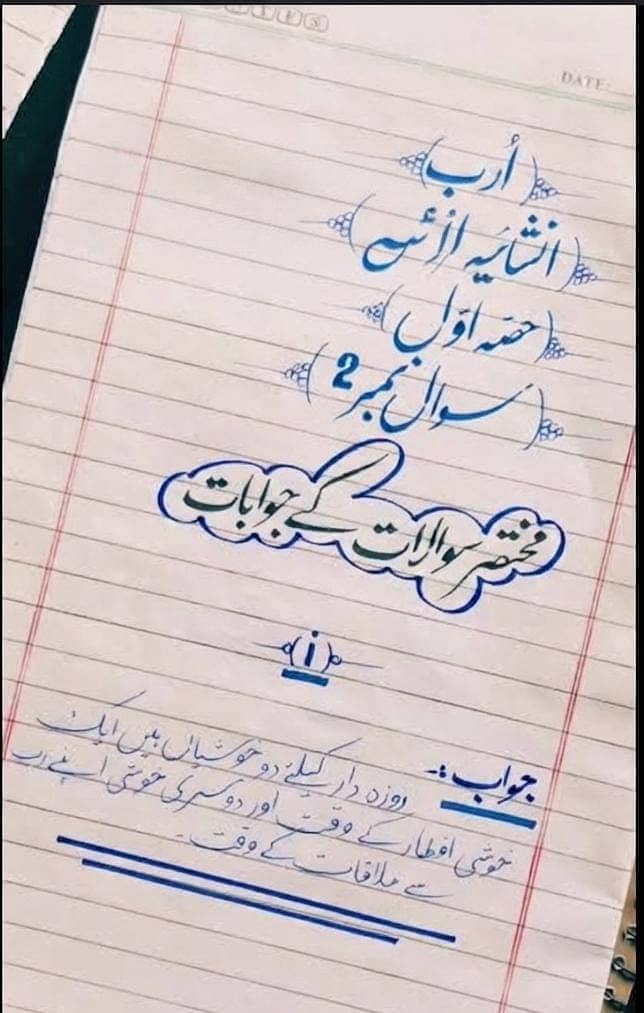 DATE:
اُرب
انشائیہ ارائسہ
حصہ اوّل
سوال نمبر 2
مختصر سوالات کے جوابات
i
جواب:۔ روزہ دار کیلئے دو خوشیاں ہیں ایک
خوشی افطار کے وقت اور دوسری خوشی اپنے رب
سے ملاقات کے وقت۔